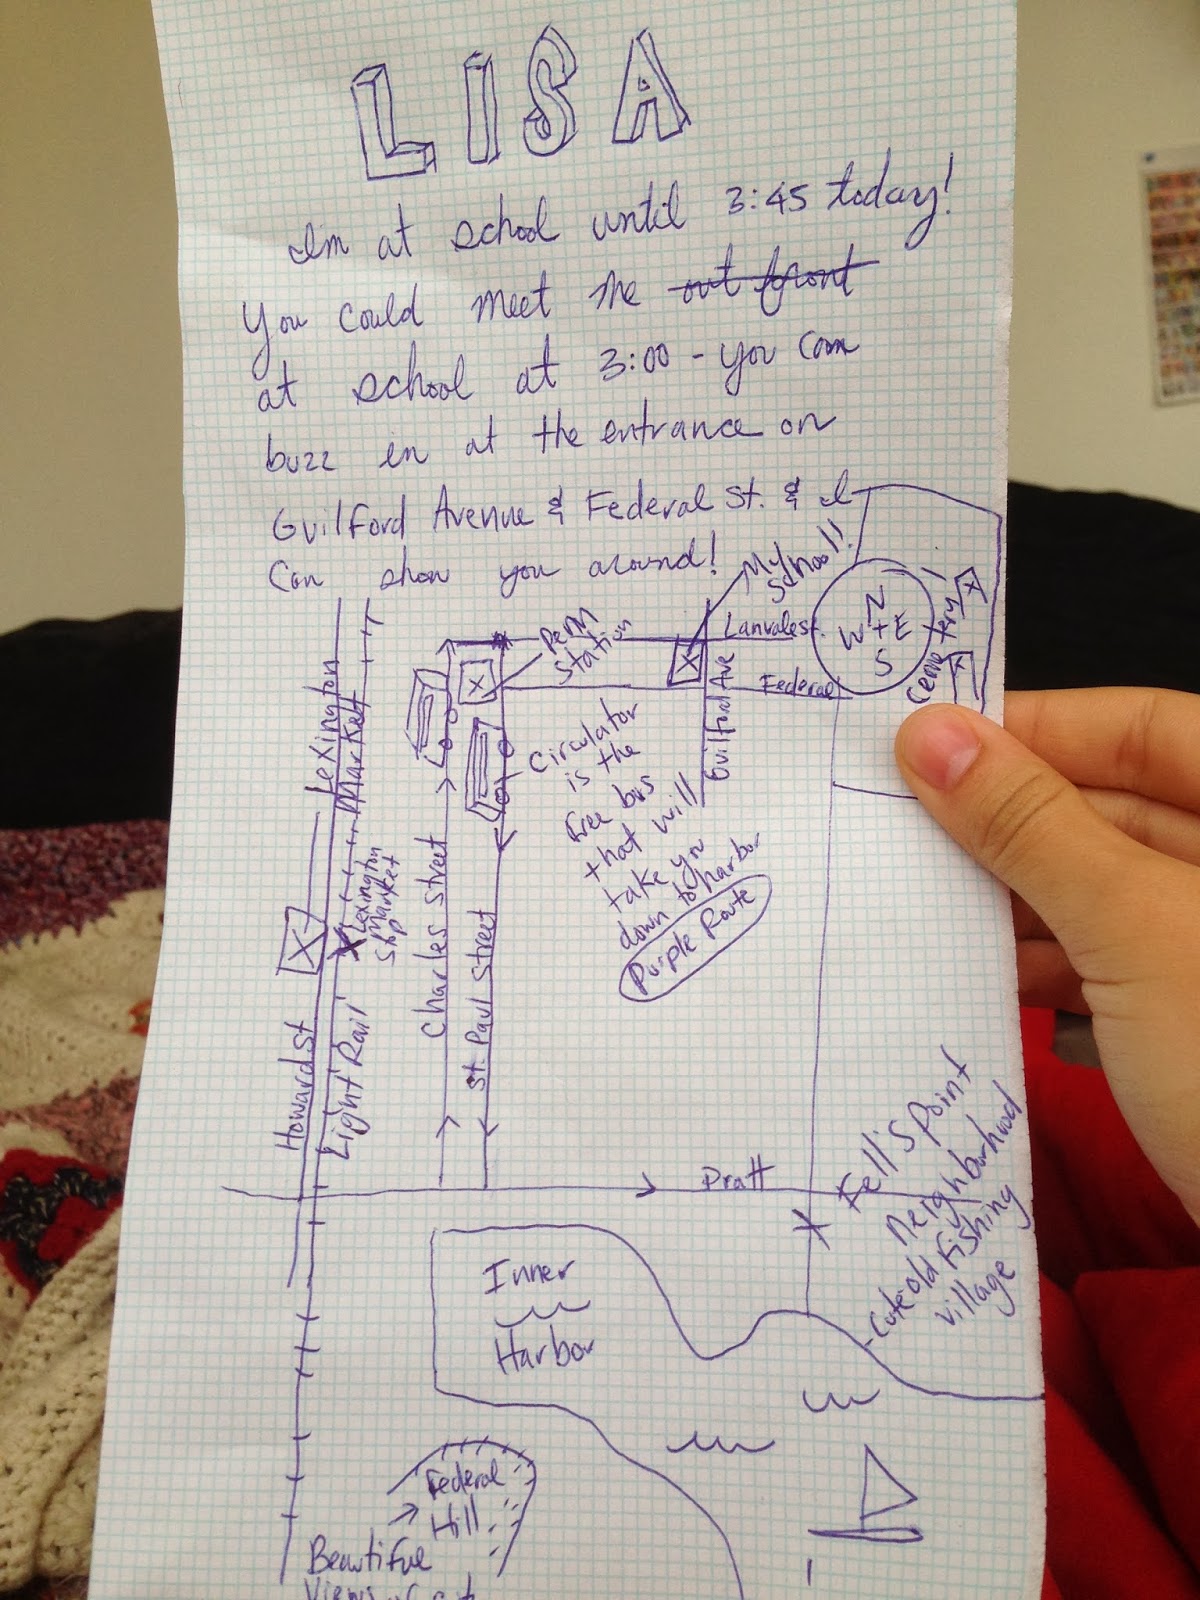 LISA
Im at school until 3:45 today!
You could meet me out front
at school at 3:00 - you can
buzz in at the entrance on
Guilford Avenue & Federal St. & I
can show you around!
My
School!!
Penn
Station
Lanvale st.
N
W + E
S
Cemetery!
Federal
Guilford Ave
Lexington
Market
Circulator
is the
Free bus
that will
take you
down to harbor
Purple Route
Lexington
Market
Stop
Charles Street
St. Paul Street
Howard St
Light Rail
Pratt
Fell's Point
neighborhood
- Cute old Fishing
village
Inner
Harbor
Federal
Hill
Beautiful
Views of